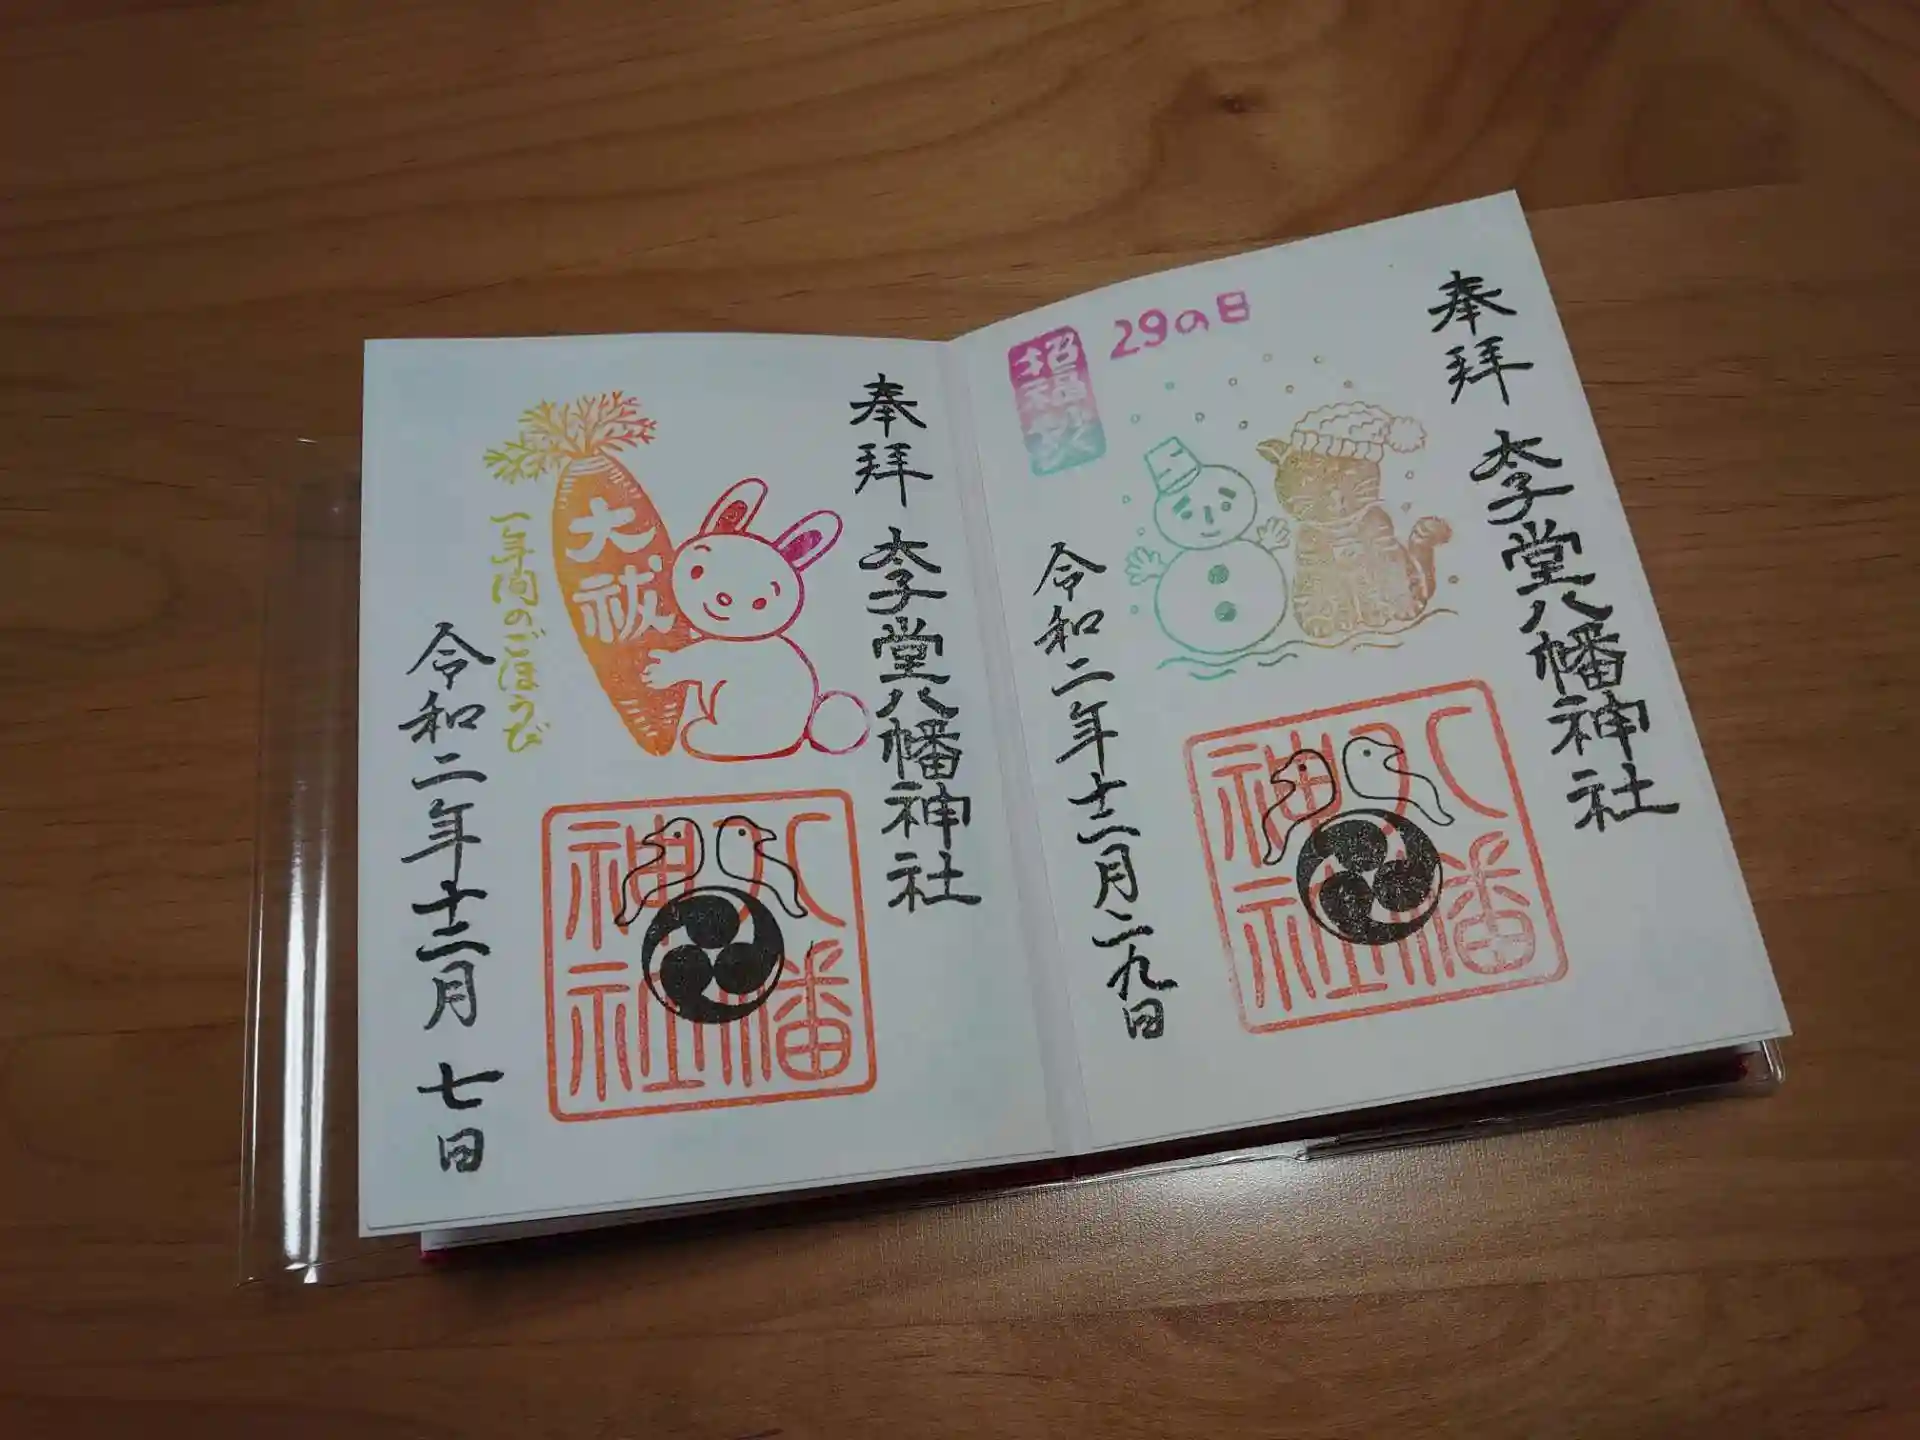 奉拝
太子堂八幡神社
29の日
招福猫
令和二年十二月二九日
八幡
神社
奉拝
太子堂八幡神社
大祓
一年間のごほうび
令和二年十二月七日
八幡
神社